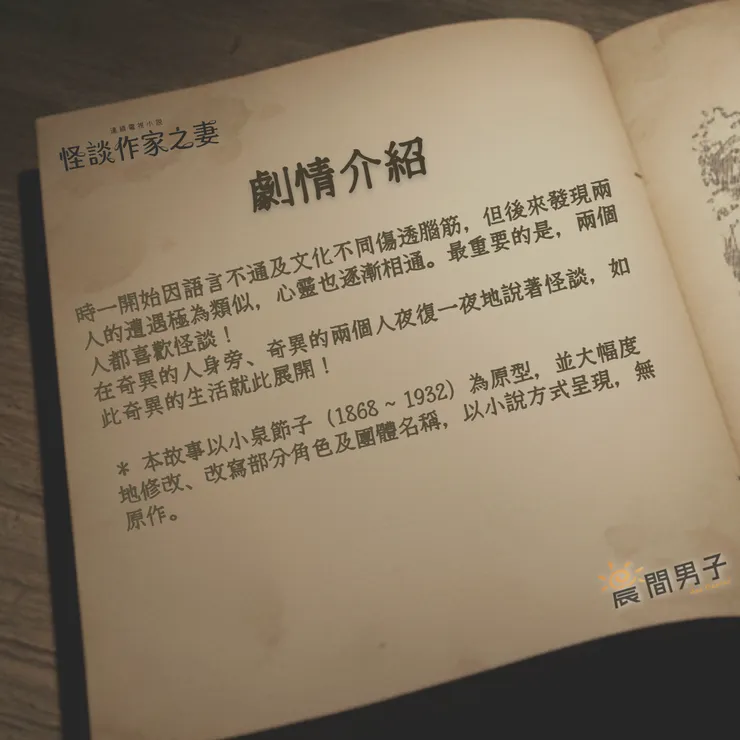 連續電視小說
怪談作家之妻
劇情介紹
時一開始因語言不通及文化不同傷透腦筋，但後來發現兩
人的遭遇極為類似，心靈也逐漸相通。最重要的是，兩個
人都喜歡怪談！
在奇異的人身旁、奇異的兩個人夜復一夜地說著怪談，如
此奇異的生活就此展開！
* 本故事以小泉節子（1868 ~ 1932）為原型，並大幅度
地修改、改寫部分角色及團體名稱，以小說方式呈現，無
原作。
晨間男子